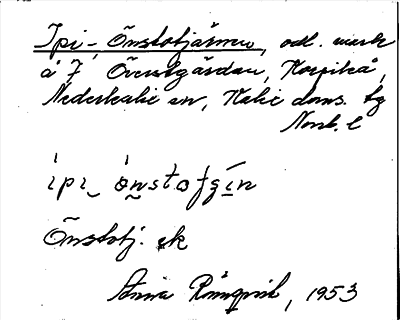 Ipi-, Önstotjärnen, odl. mark
å 7 Överstgården, Korpikå,
Nederkalix sn, Kalix doms. tg
Norrb. l
ipi_ önstofgin
Önstotj. ek
Anna Rönnqvist, 1953